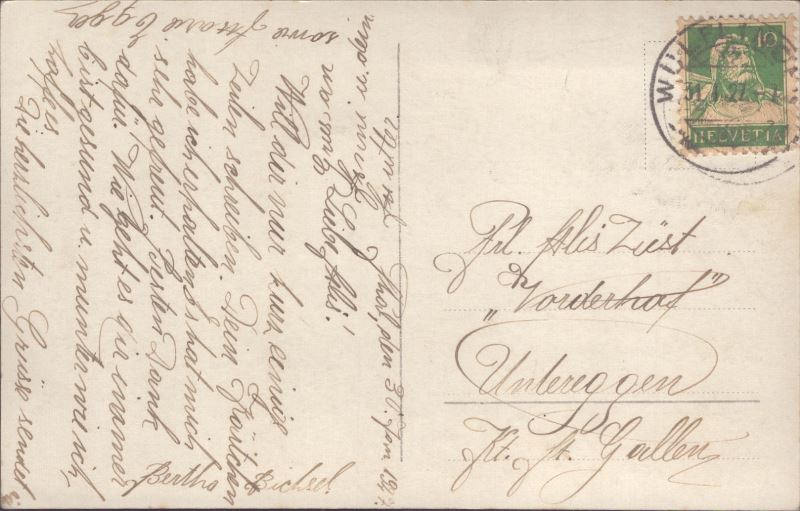 Thal, den 30. Jan. 1927.
Liebe Alis!
Will dir nur kurz einige
Zeilen schreiben. Dein Kärtchen
habe ich erhalten es hat mich
sehr gefreut. Besten Dank
dafür. Wie geht es dir immer
bist gesund u. munter wie ich
hoffe es
Die herzlichsten Grüsse sendet
Bertha Bichsel.
sowie Egger
10
31.I.27
HELVETIA
Frl. Alis Züst
z. "Vorderhof"
Untereggen
Kt. St. Gallen